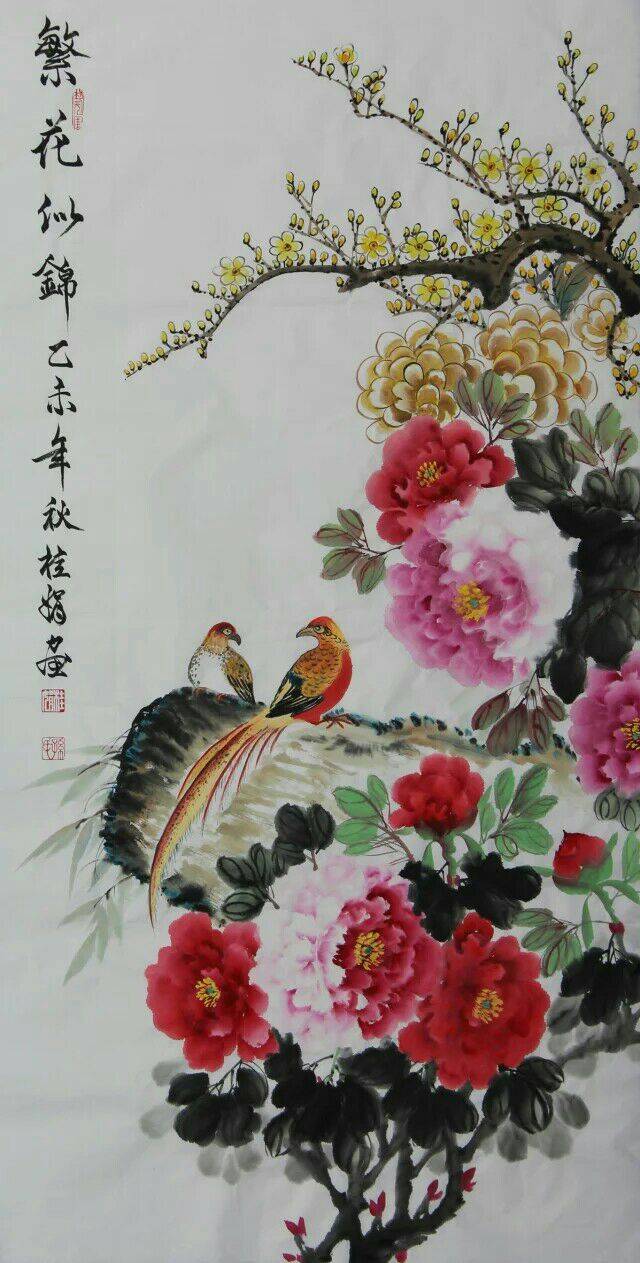 繁花似錦乙未年秋桂娟畫